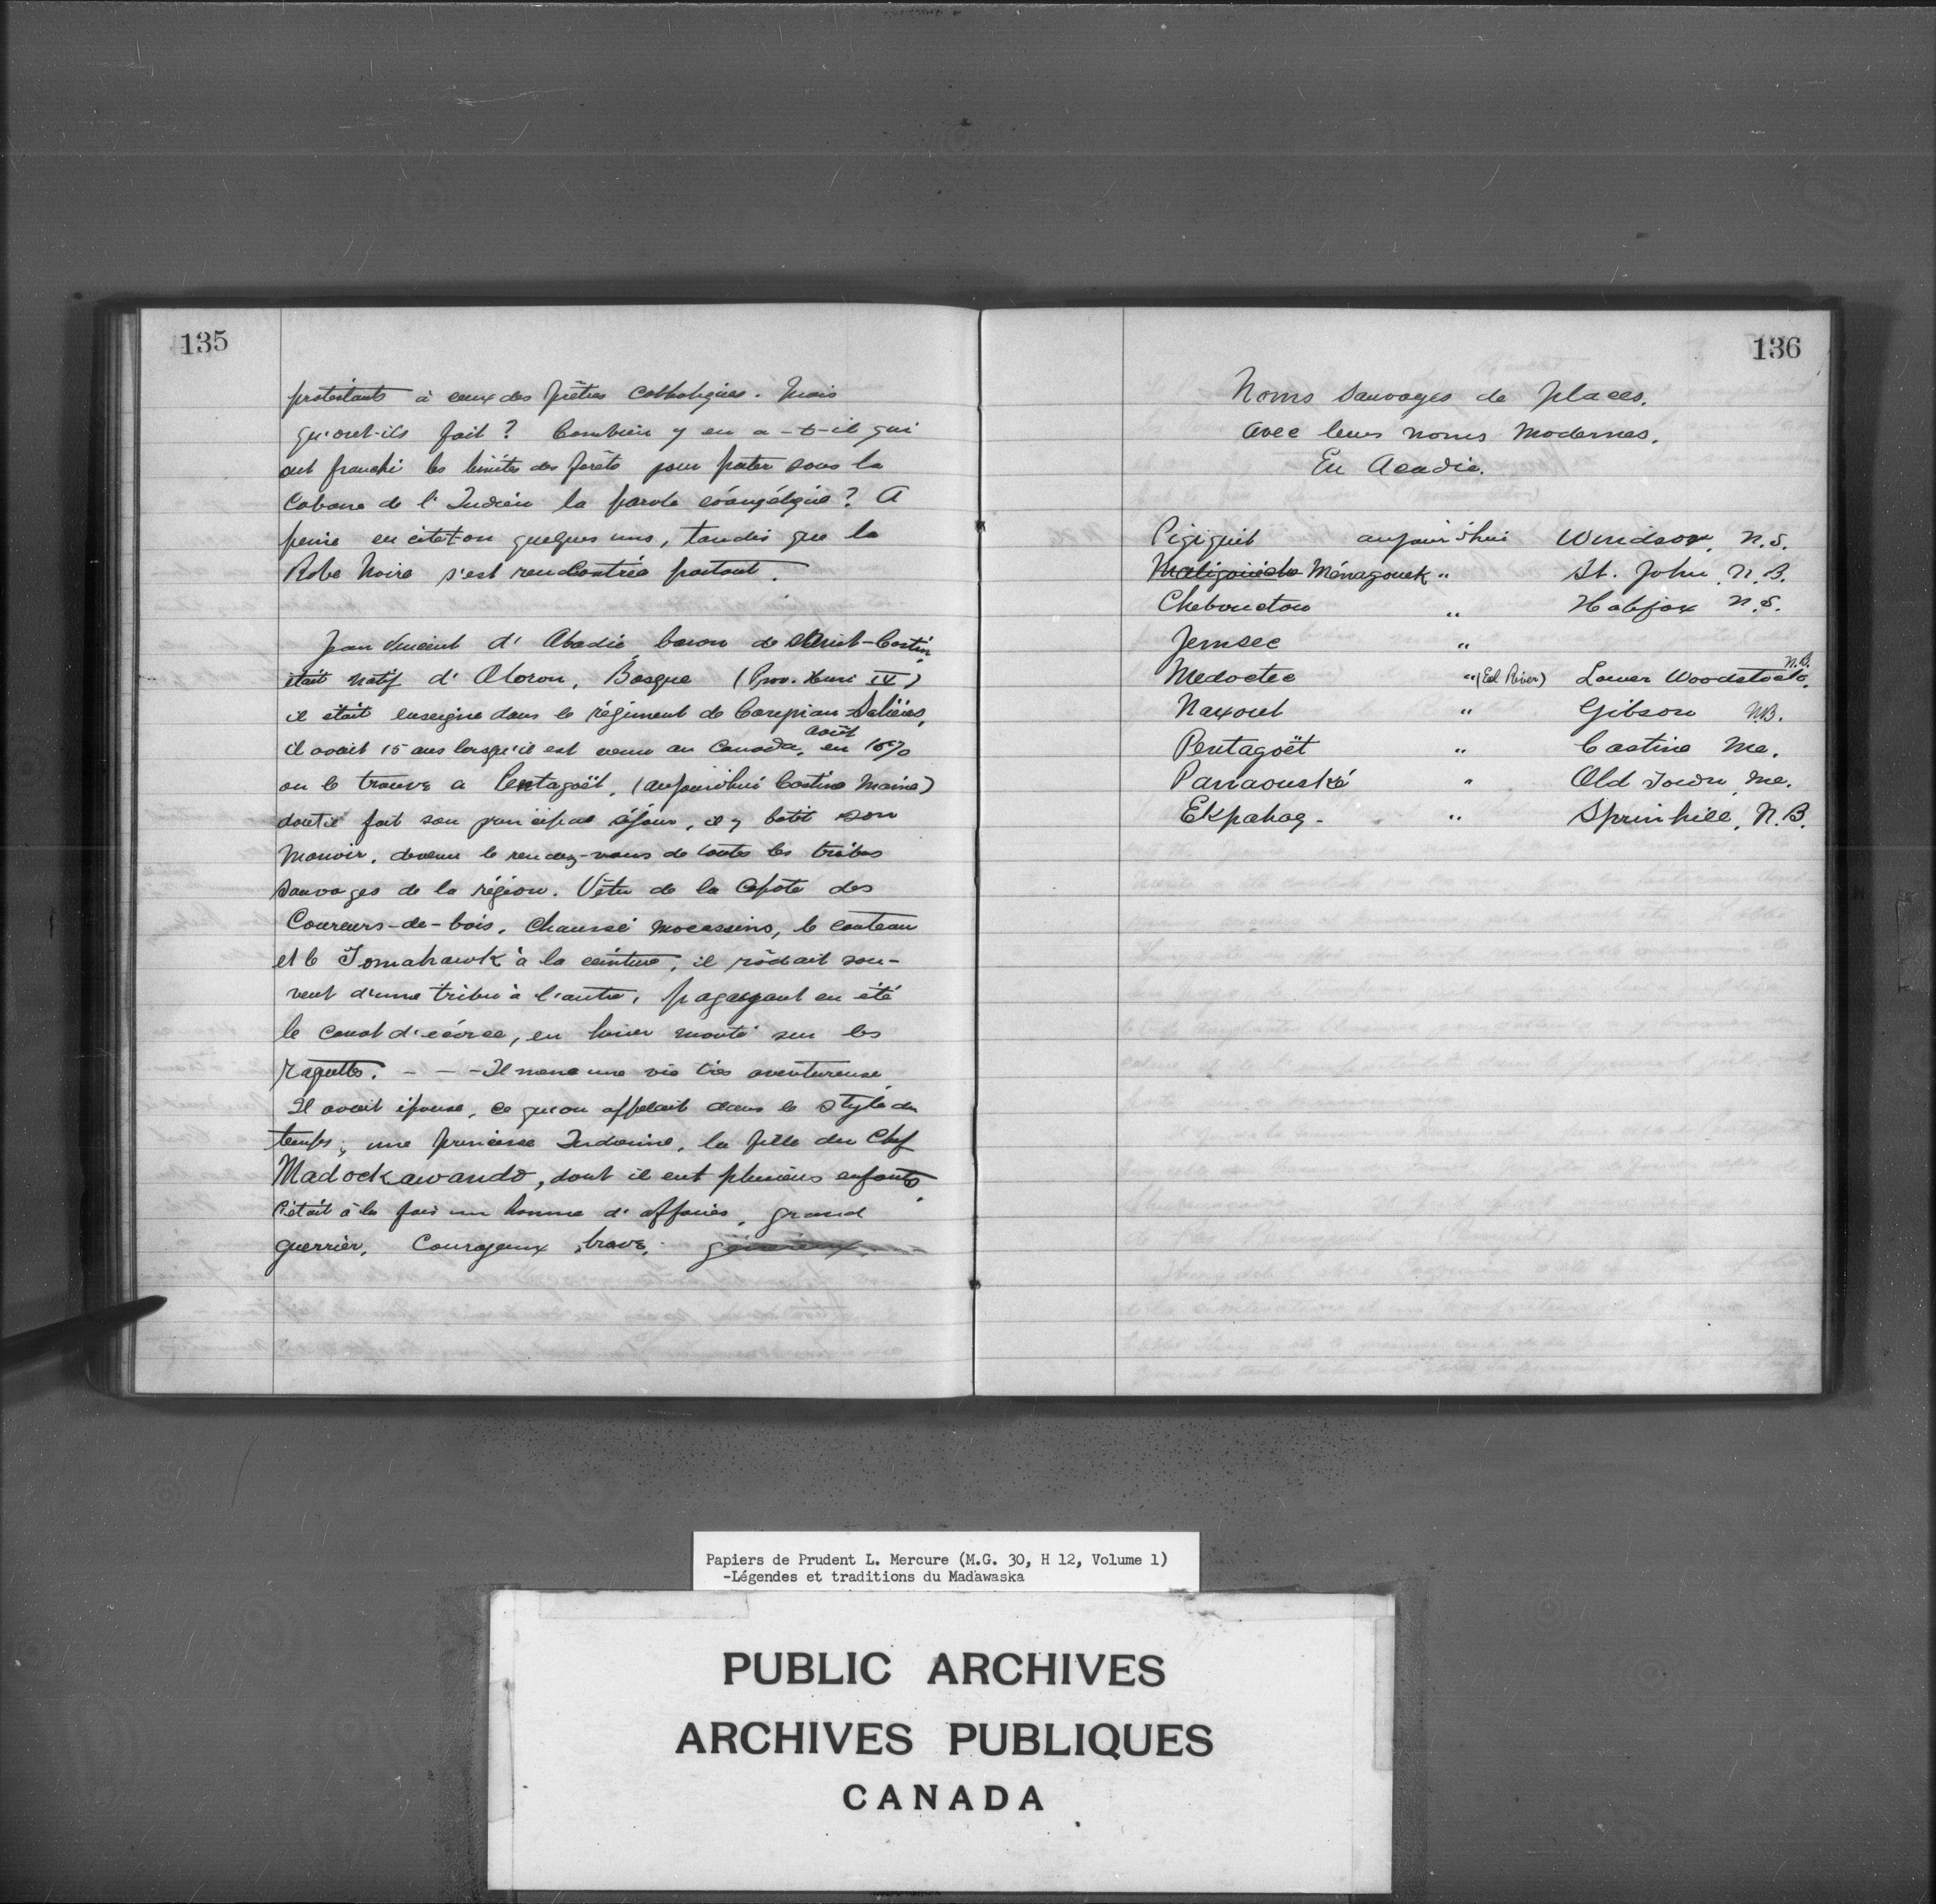 135
protestants à ceux des prêtres catholiques. Mais
qu'ont-ils fait ? Combien y en a-t-il qui
ont franchi les limites des forêts pour porter sous la
Cabane de l'Indien la parole évangélique ? A
peine en cite-t-on quelques uns, tandis que la
Robe Noire s'est rencontrée partout.
Jean Vincent d'Abadie, baron de Saint-Castin,
était natif d'Oloron, Basque (Prov. Henri IV)
il était enseigne dans le régiment de Carignan Salières,
il avait 15 ans lorsqu'il est venu au Canada, en août 1670
on le trouve a Pentagoët, (aujourd'hui Castine Maine)
dont il fait son principal séjour, il y batit son
Manoir, devenu le rendez-vous de toutes les tribus
Sauvages de la région. Vêtu de la Capote des
Coureurs-de-bois, chaussé mocassins, le couteau
et le Tomahawk à la ceinture, il rôdait sou-
vent d'une tribu à l'autre, pagayant en été
le canot d'écorce, en hiver monté sur les
raquettes. - - - Il mena une vie très aventureuse
Il avait épouse, ce qu'on appelait dans le style du
temps, une princesse Indienne, la fille du Chef
Madockawando, dont il eut plusieurs enfants,
C'était à la fois un homme d'affaires, grand
guerrier, Courageux, brave, généreux.
136
Noms Sauvages de places.
Avec leurs noms Modernes.
En Acadie.
Pigiguit aujourd'hui Windsor, N.S.
Ménagouek " St. John, N.B.
Chebouctou " Halifax N.S.
Jemsec "
Medoctec " (Eel River) Lower Woodstock, N.B.
Naxouet " Gibson NB.
Pentagoët " Castine Me.
Panaouské " Old Town, Me.
Ekpahag - " Sprinhill, N.B.
Papiers de Prudent L. Mercure (M.G. 30, H 12, Volume 1)
-Légendes et traditions du Madawaska
PUBLIC ARCHIVES
ARCHIVES PUBLIQUES
CANADA